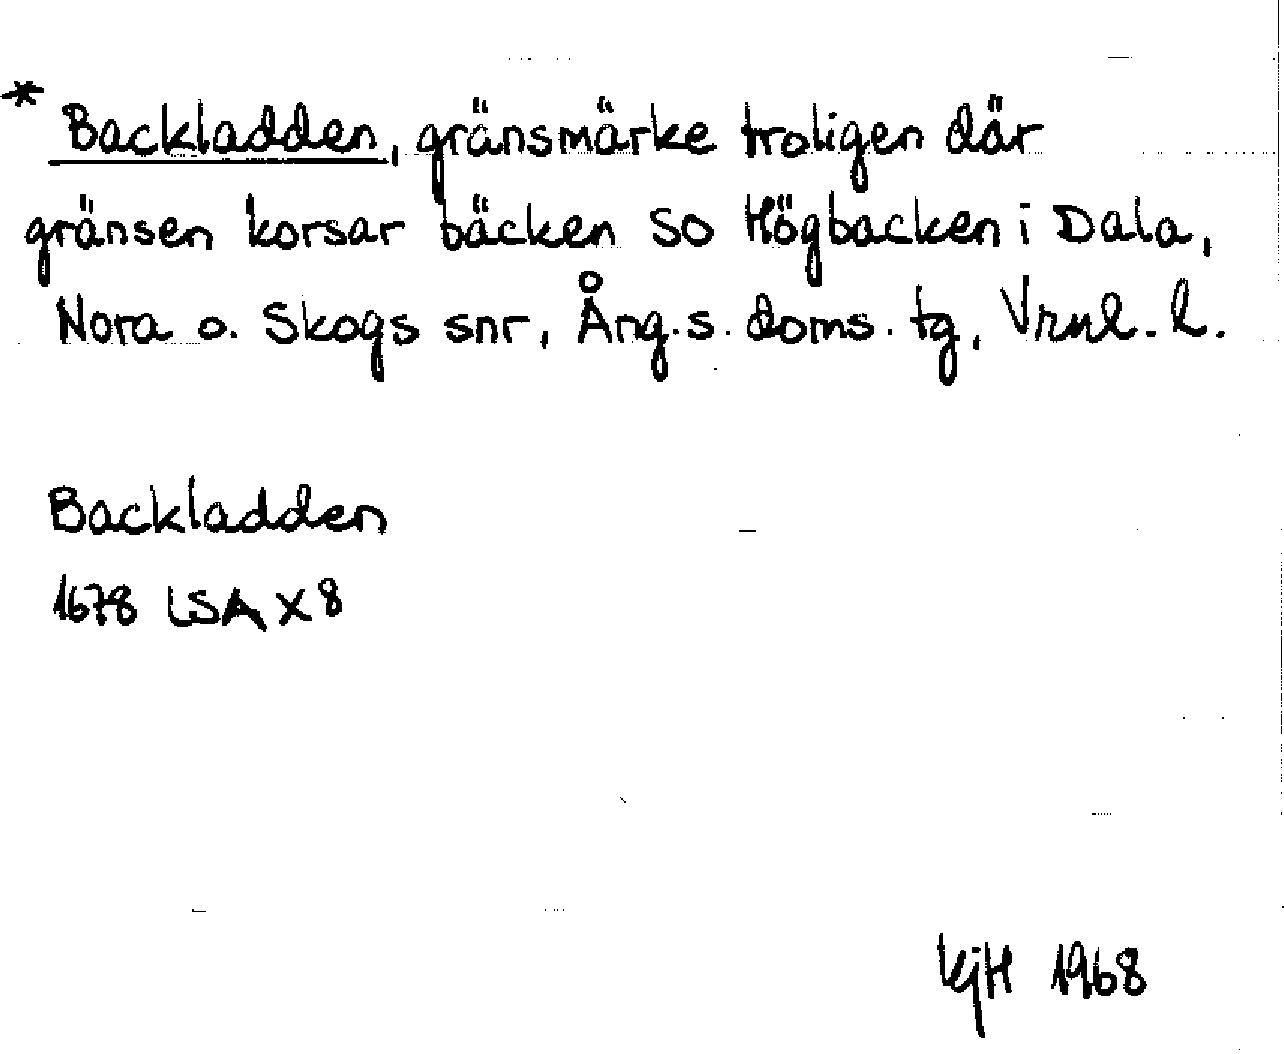 * Backladden, gränsmärke troligen där
gränsen korsar bäcken SO Högbacken i Dala,
Nora o. Skogs snr, Ång.s. doms. tg, Vrnl. l.
Backladden
1678 LSA X 8
KjH 1968